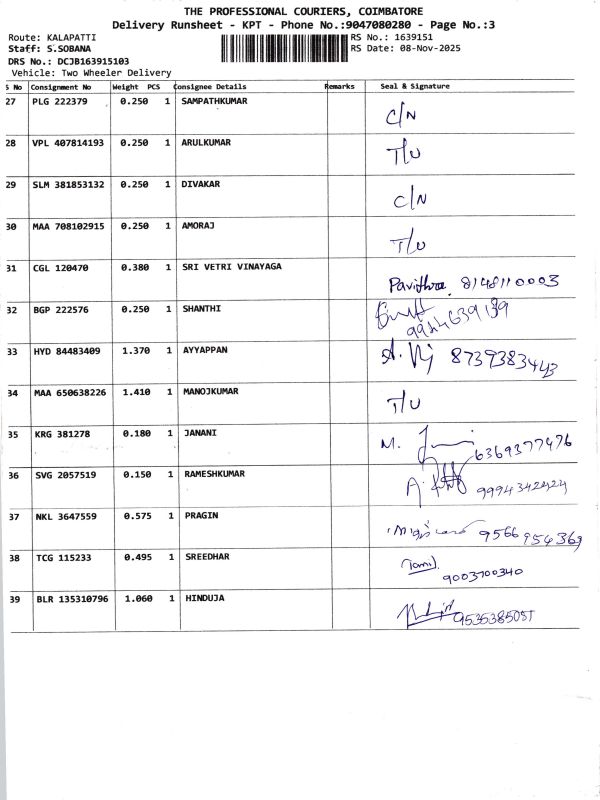 THE PROFESSIONAL COURIERS, COIMBATORE
Delivery Runsheet - KPT - Phone No.:9047080280 - Page No.:3
Route: KALAPATTI RS No.: 1639151
Staff: S.SOBANA RS Date: 08-Nov-2025
DRS No.: DCJB163915103
Vehicle: Two Wheeler Delivery
S No Consignment No Weight PCS Consignee Details Remarks Seal & Signature
27 PLG 222379 0.250 1 SAMPATHKUMAR C/N
28 VPL 407814193 0.250 1 ARULKUMAR T/U
29 SLM 381853132 0.250 1 DIVAKAR C/N
30 MAA 708102915 0.250 1 AMORAJ T/U
31 CGL 120470 0.380 1 SRI VETRI VINAYAGA Pavithra. 8148110003
32 BGP 222576 0.250 1 SHANTHI 9944639139
33 HYD 84483409 1.370 1 AYYAPPAN 8739383443
34 MAA 650638226 1.410 1 MANOJKUMAR T/U
35 KRG 381278 0.180 1 JANANI M. 6369377476
36 SVG 2057519 0.150 1 RAMESHKUMAR A.
37 NKL 3647559 0.575 1 PRAGIN 9566954369
38 TCG 115233 0.495 1 SREEDHAR Tamil. 9003700340
39 BLR 135310796 1.060 1 HINDUJA